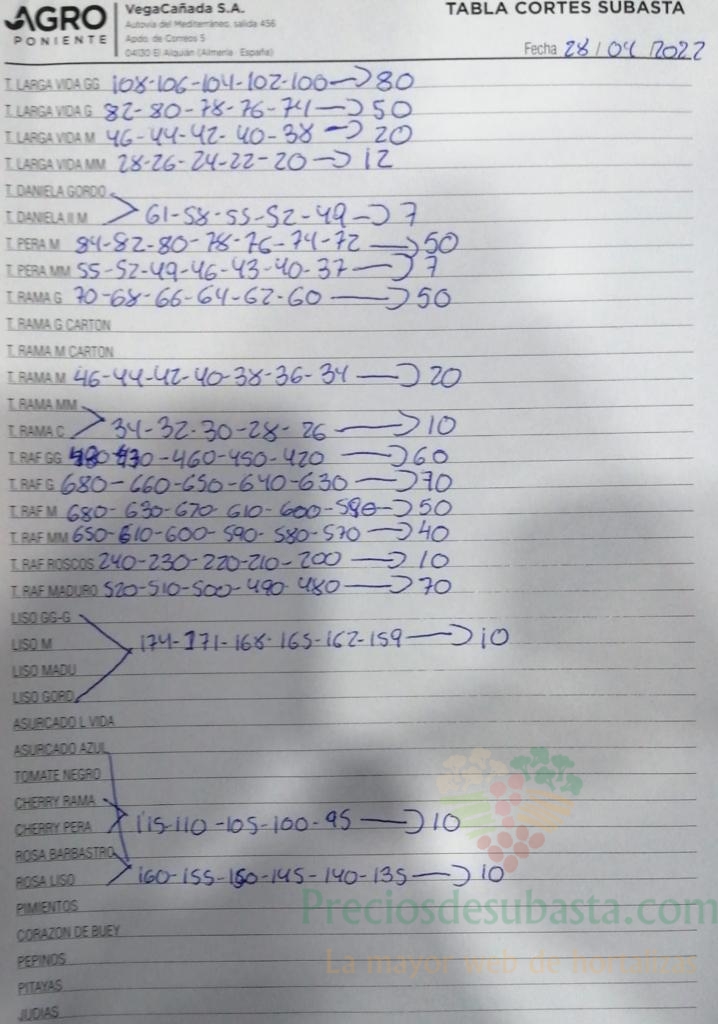 AGRO
PONIENTE
VegaCañada S.A.
Autovía del Mediterráneo, salida 456
Apdo. de Correos 5
04130 El Alquián (Almería · España)
TABLA CORTES SUBASTA
Fecha 28/04/2022
T. LARGA VIDA GG 108-106-104-102-100→80
T. LARGA VIDA G 82-80-78-76-74→50
T. LARGA VIDA M 46-44-42-40-38→20
T. LARGA VIDA MM 28-26-24-22-20→12
T. DANIELA GORDO
T. DANIELA II M 61-58-55-52-49→7
T. PERA M 84-82-80-78-76-74-72→50
T. PERA MM 55-52-49-46-43-40-37→7
T. RAMA G 70-68-66-64-62-60→50
T. RAMA G CARTON
T. RAMA M CARTON
T. RAMA M 46-44-42-40-38-36-34→20
T. RAMA MM
T. RAMA C 34-32-30-28-26→10
T. RAF GG -460-450-420→60
T. RAF G 680-660-650-640-630→70
T. RAF M 680-630-620-610-600-580→50
T. RAF MM 650-610-600-590-580-570→40
T. RAF ROSCOS 240-230-220-210-200→10
T. RAF MADURO 520-510-500-490-480→70
LISO GG-G
LISO M 174-171-168-165-162-159→10
LISO MADU
LISO GORD
ASURCADO L VIDA
ASURCADO AZUL
TOMATE NEGRO
CHERRY RAMA
CHERRY PERA 115-110-105-100-95→10
ROSA BARBASTRO
ROSA LISO 160-155-150-145-140-135→10
PIMIENTOS
Preciosdesubasta.com
CORAZON DE BUEY
PEPINOS
La mayor web de hortalizas
PITAYAS
JUDIAS